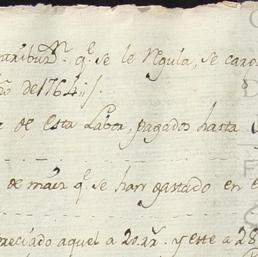 q.^e se le Regula, se carg
de 1764 //.
de esta Labor, pagados hasta
de maiz q.^e se han gastado en e
preciado aquel a 20 r.^s y este a 28